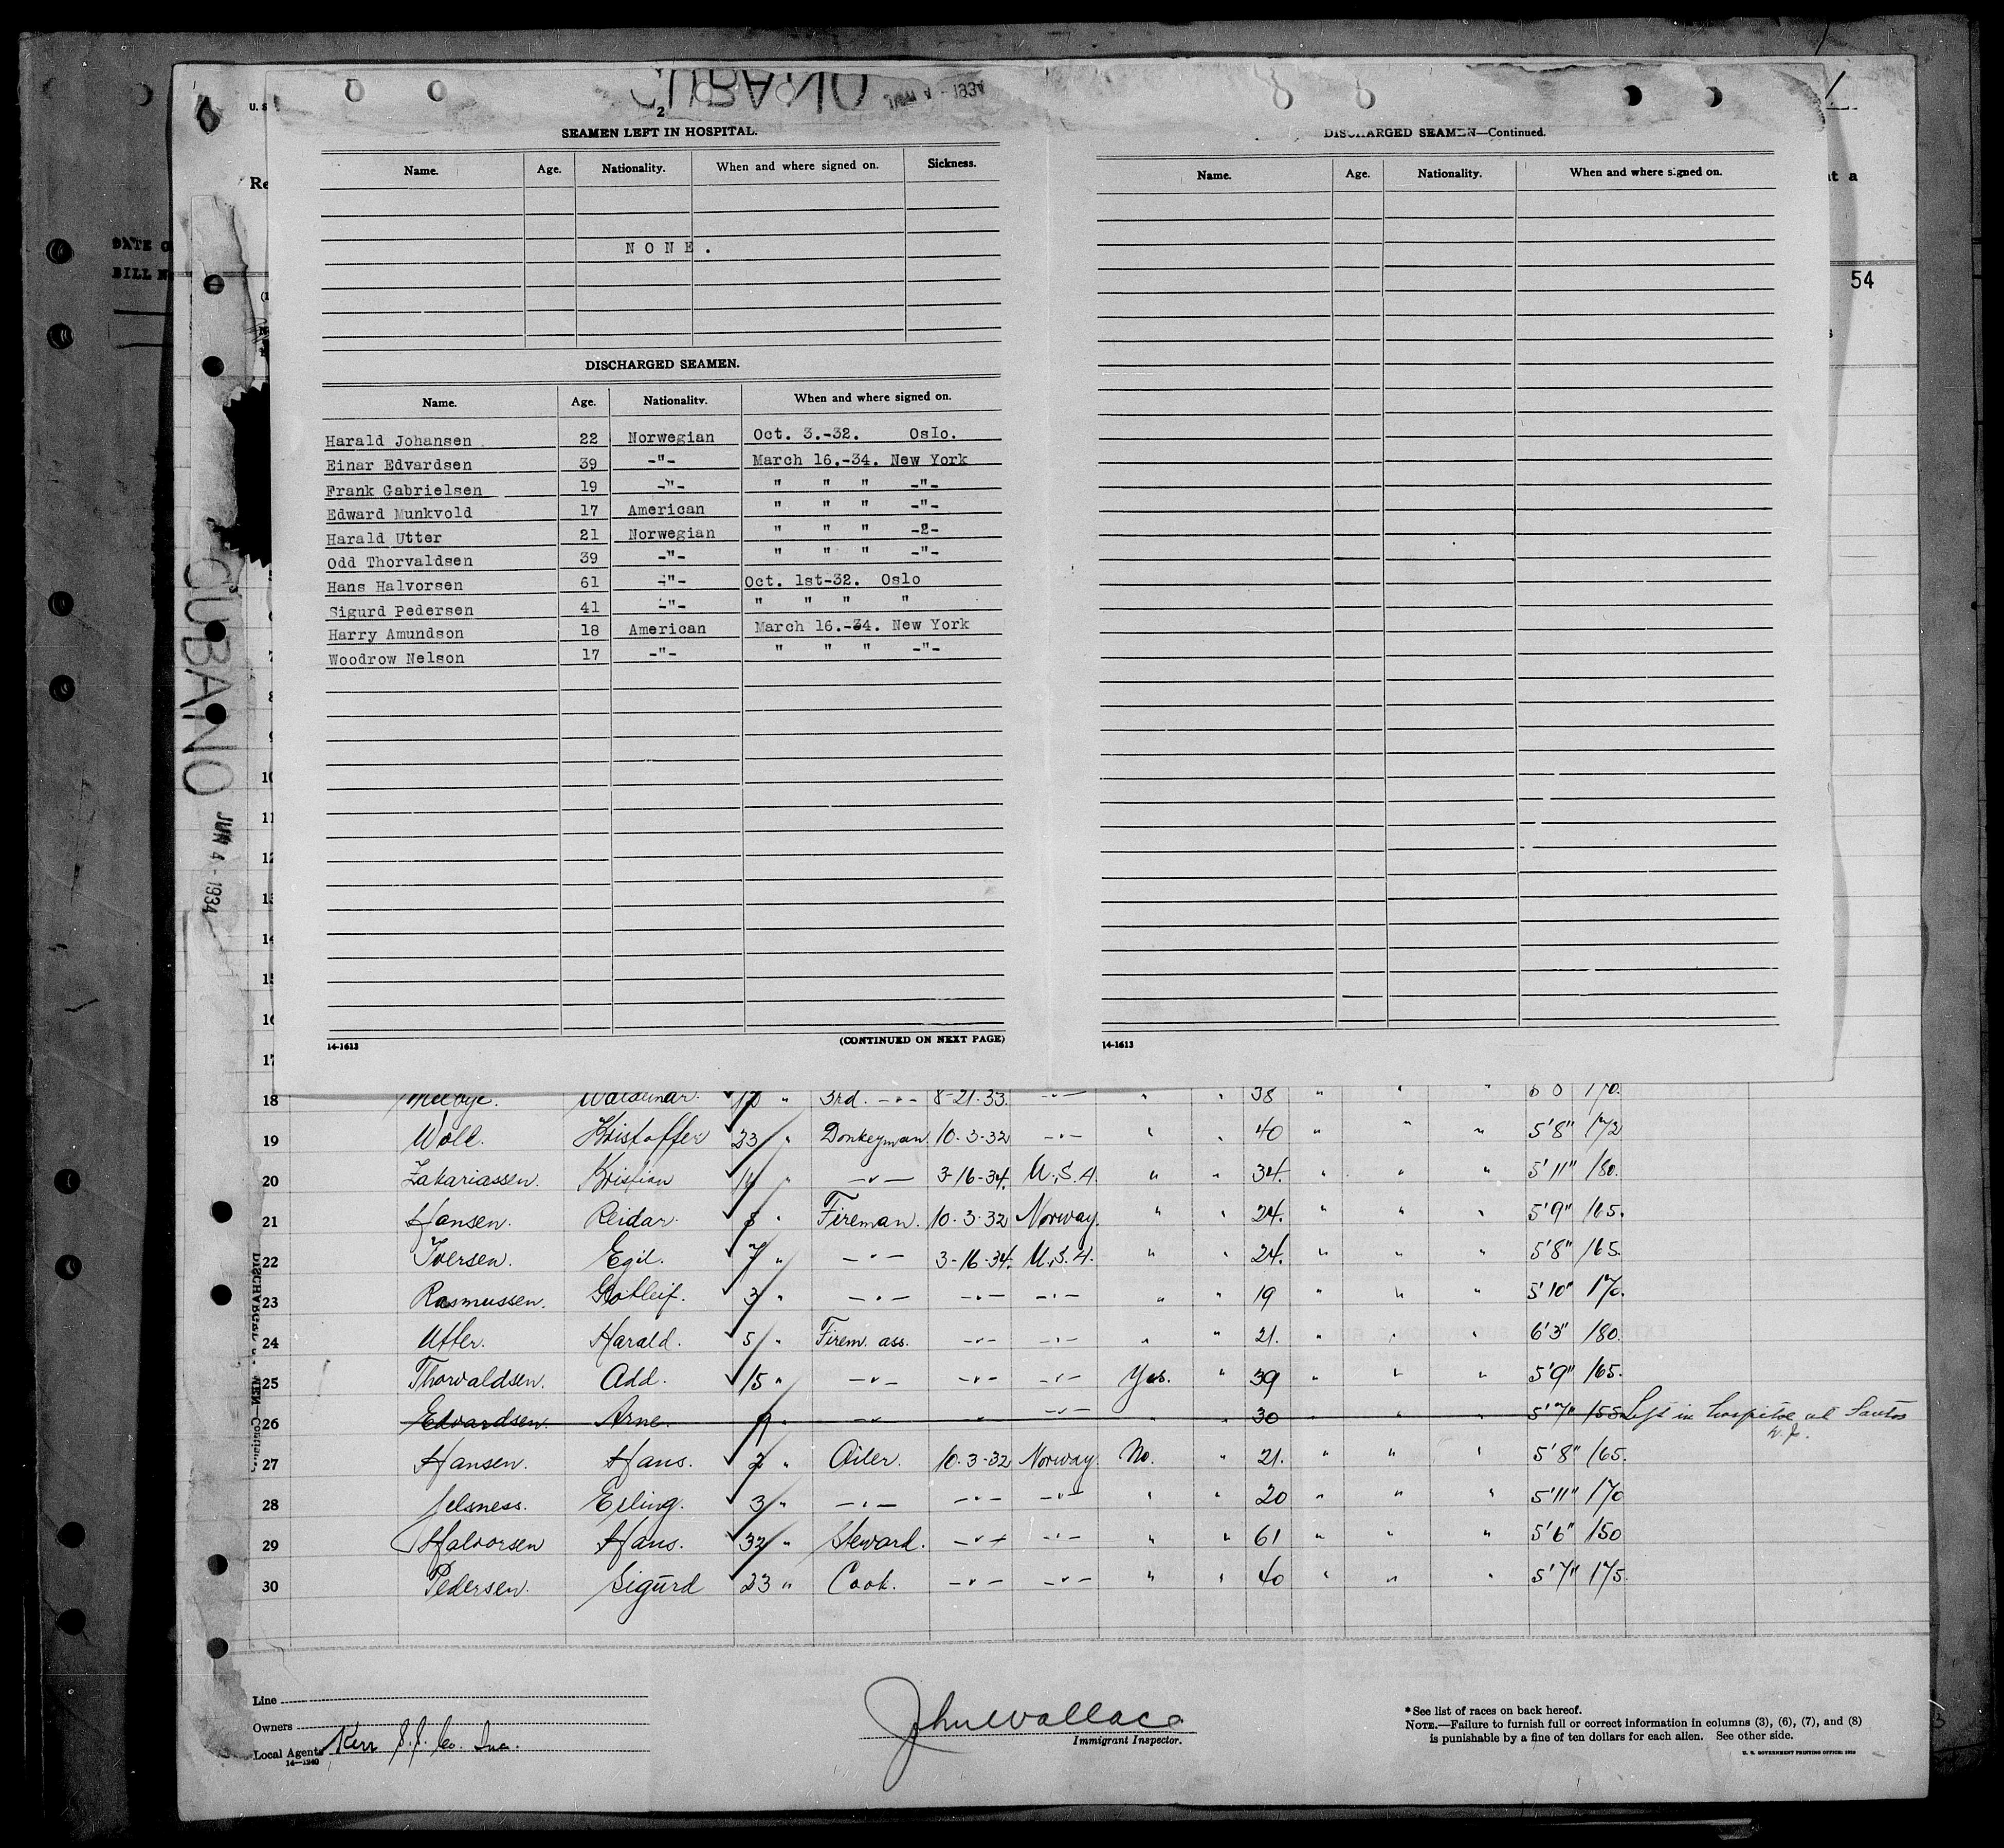 CUBANO JUN 4 - 1934
2
SEAMEN LEFT IN HOSPITAL.
Name. Age. Nationality. When and where signed on. Sickness.
NONE.
DISCHARGED SEAMEN.
Name. Age. Nationality. When and where signed on.
Harald Johansen 22 Norwegian Oct. 3.-32. Oslo.
Einar Edvardsen 39 -"- March 16.-34. New York
Frank Gabrielsen 19 -"- " " " -"-
Edward Munkvold 17 American " " " -"-
Harald Utter 21 Norwegian " " " -2-
Odd Thorvaldsen 39 -"- " " " -"-
Hans Halvorsen 61 -"- Oct. 1st-32. Oslo
Sigurd Pedersen 41 -"- " " " "
Harry Amundson 18 American March 16.-34. New York
Woodrow Nelson 17 -"- " " " -"-
14-1613 (CONTINUED ON NEXT PAGE)
DISCHARGED SEAMEN—Continued.
Name. Age. Nationality. When and where signed on.
14-1613
U. S
Re
DATE O
BILL N
t a
54
CUBANO JUN 4 - 1934
10
11
12
13
14
15
16
17
18 Waldemar. 3rd. -"- 8-21-33. -"- " " 38 " " " 6 0 170.
19 Woll. Kristoffer 23 " Donkeyman 10-3-32 -"- " " 40 " " " 5'8" 172
20 Zakariassen. Kristian 16 " -"- 3-16-34. U.S.A. " " 34. " " " 5'11" 180.
21 Hansen. Reidar. 8 " Fireman. 10-3-32 Norway. " " 24. " " " 5'9" 165.
22 Iversen. Egil. 7 " -"- 3-16-34. U.S.A. " " 24. " " " 5'8" 165.
23 Rasmussen. 3 " -"- -"- -"- " " 19 " " " 5'10" 170.
24 Utter. Harald. 5 " Firem. ass. -"- -"- " " 21. " " " 6'3" 180.
25 Thorvaldsen. Odd. 15 " -"- -"- -"- Yes. " 39 " " " 5'9" 165.
26 Edvardsen. Arne. 9 " -"- " -"- " " 30 " " " 5'7" 155 Left in hospital at Santos
27 Hansen. Hans. 2 " Oiler. 10-3-32 Norway. No. " 21. " " " 5'8" 165.
28 Jelsness. Erling. 3 " -"- -"- -"- " " 20 " " " 5'11" 170
29 Halvorsen Hans. 32 " Steward. -"- -"- " " 61 " " " 5'6" 150
30 Pedersen. Sigurd 23 " Cook. -"- -"- " " 40 " " " 5'7" 175.
Line
Owners
Local Agents Kerr S.S. Co. Inc.
14—1240
John Wallace
Immigrant Inspector.
*See list of races on back hereof.
NOTE.—Failure to furnish full or correct information in columns (3), (6), (7), and (8)
is punishable by a fine of ten dollars for each alien. See other side.
U. S. GOVERNMENT PRINTING OFFICE: 1929